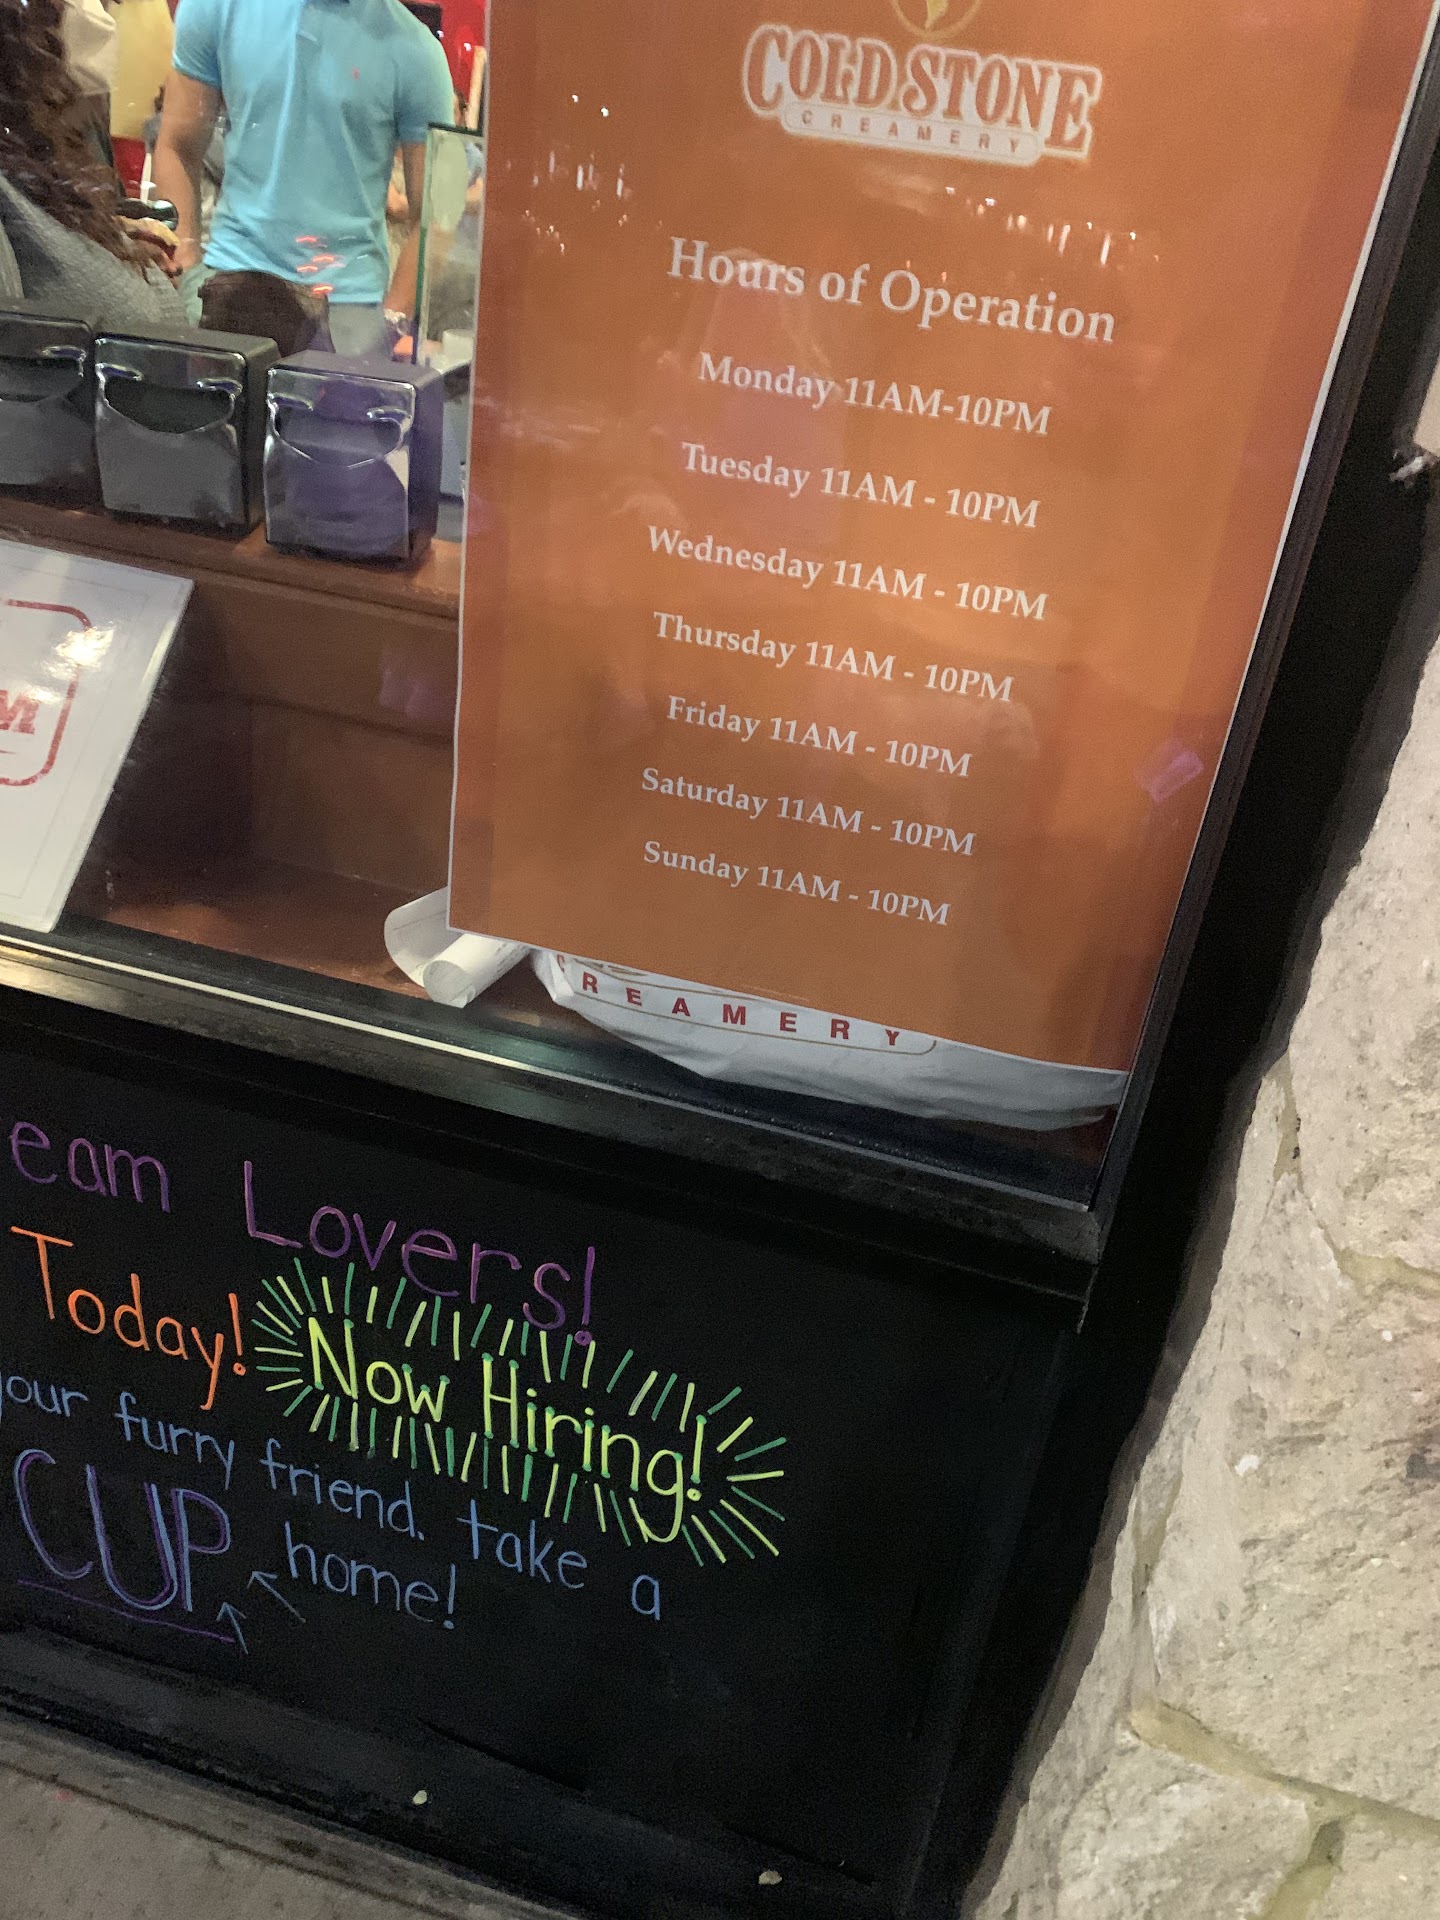 COLD STONE
CREAMERY
Hours of Operation
Monday 11AM-10PM
Tuesday 11AM - 10PM
Wednesday 11AM - 10PM
Thursday 11AM - 10PM
Friday 11AM - 10PM
Saturday 11AM - 10PM
Sunday 11AM - 10PM
CREAMERY
M
eam Lovers!
Today! Now Hiring!
our furry friend. take a
CUP home!